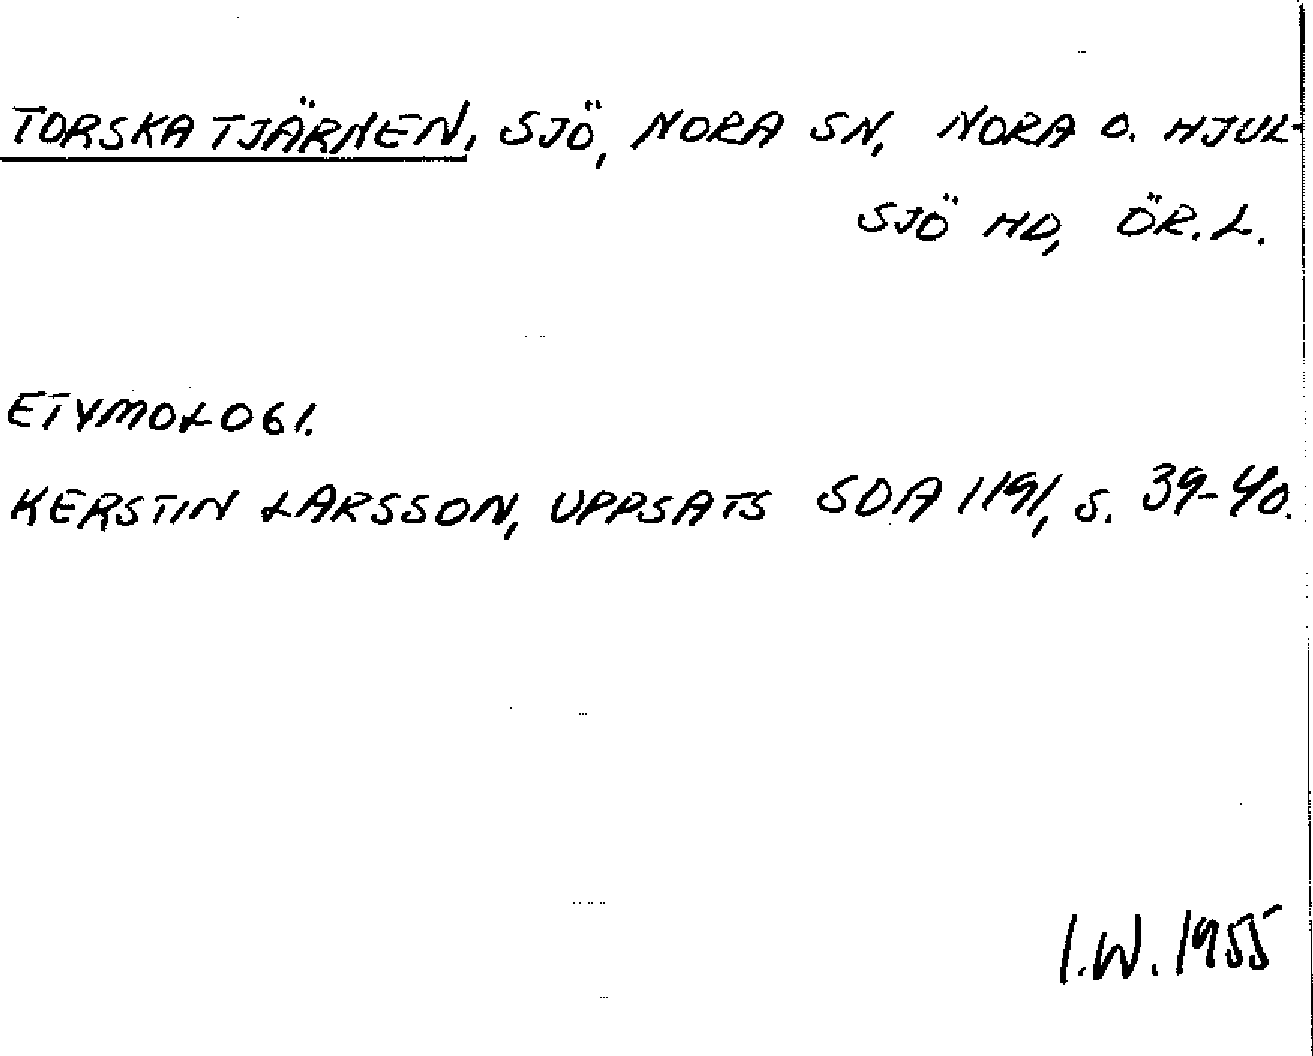 TORSKATJÄRNEN, SJÖ, NORA SN, NORA O. HJUL-
SJÖ HD, ÖR.L.
ETYMOLOGI.
KERSTIN LARSSON, UPPSATS SOA 1191, S. 39-40.
I.W. 1955